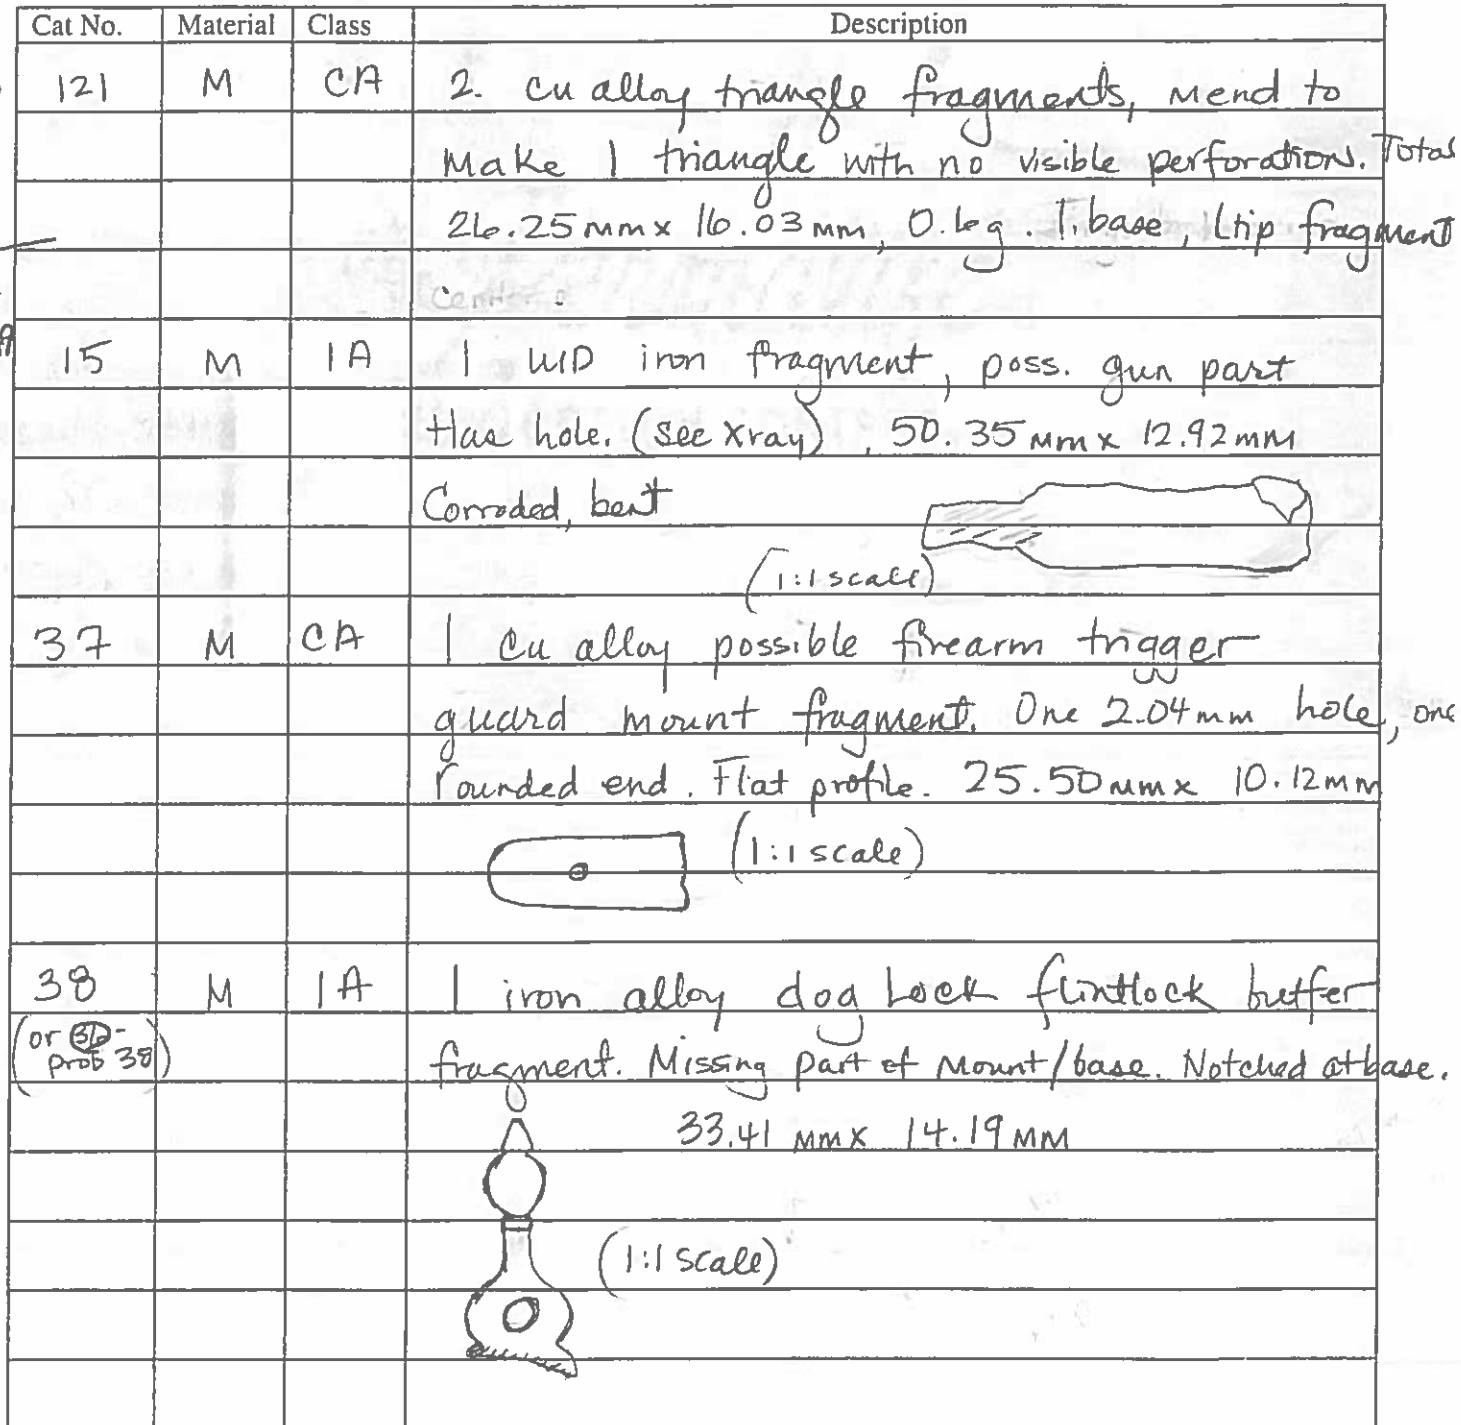 Cat No. Material Class Description
121 M CA 2. Cu alloy triangle fragments, mend to
Make 1 triangle with no visible perforation. Total
26.25 mm x 16.03 mm, 0.6g. 1 base, 1 tip fragment
15 M IA 1 UID iron fragment, poss. gun part
Has hole. (see xray), 50.35 mm x 12.92 mm
Corroded, bent
(1:1 scale)
37 M CA 1 Cu alloy possible firearm trigger
guard mount fragment. One 2.04 mm hole, one
rounded end. Flat profile. 25.50 mm x 10.12 mm
(1:1 scale)
38 M IA 1 iron alloy dog Lock flintlock buffer
(or 36- prob 38) fragment. Missing part of Mount/base. Notched at base.
33.41 mm x 14.19 MM
(1:1 Scale)